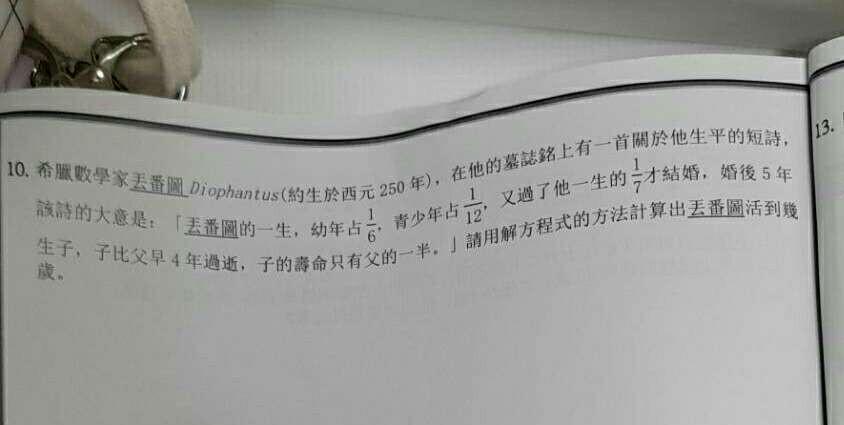 10. 希臘數學家丟番圖 Diophantus(約生於西元 250 年)，在他的墓誌銘上有一首關於他生平的短詩，
該詩的大意是：「丟番圖的一生，幼年占1/6，青少年占1/12，又過了他一生的1/7才結婚，婚後 5 年
生子，子比父早 4 年過逝，子的壽命只有父的一半。」請用解方程式的方法計算出丟番圖活到幾
歲。
13.